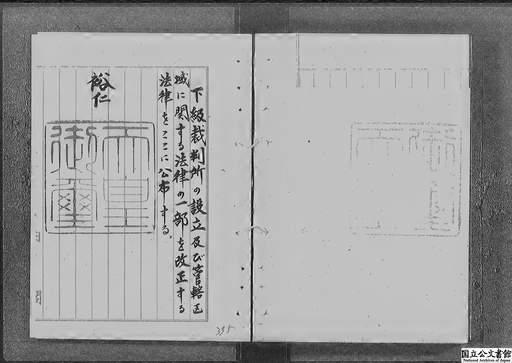 下級裁判所の設立及び管轄区
域に関する法律の一部を改正する
法律をここに公布する。
裕仁
天皇
御璽
395
国立公文書館
National Archives of Japan